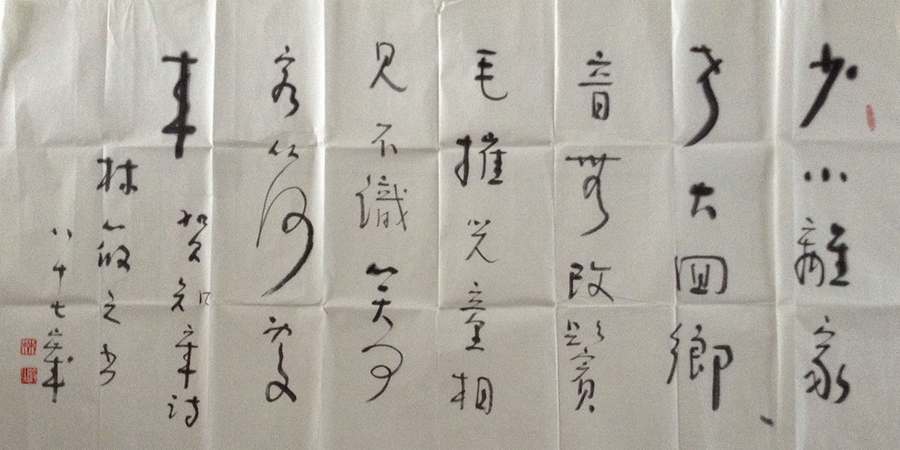 少小離家
老大囬鄉
音無改鬢
毛摧兒童相
見不識笑問
客从何處
来
賀知章詩
林筱之書
八十七歲